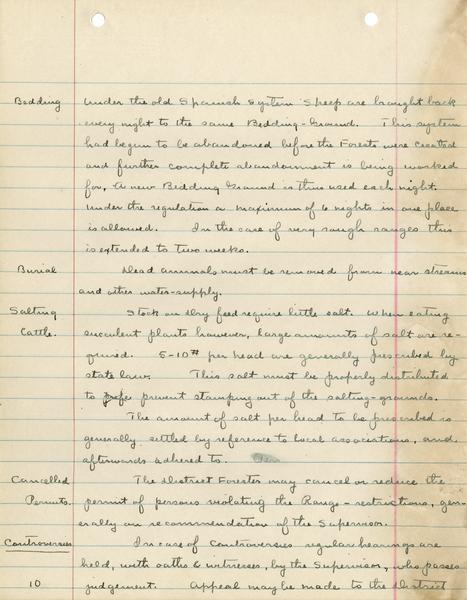 Bedding Under the old Spanish System Speep are brought back
every night to the same Bedding-Ground. This system
had begun to be abandoned before the Forests were created
and further complete abandonment is being worked
for. A new Bedding Ground is thus used each night.
Under the regulation a maximum of 6 nights in one place
is allowed. In the case of very rough ranges this
is extended to two weeks.
Burial Dead animals must be removed from near streams
and other water-supply.
Salting Stock on dry feed require little salt. When eating
Cattle. succulent plants however, large amounts of salt are re-
quired. 5-10# per head are generally prescribed by
state law. This salt must be properly distributed
to prevent stamping out of the salting-grounds.
The amount of salt per head to be prescribed is
generally settled by reference to local associations, and
afterwards adhered to.
Cancelled The District Forester may cancel or reduce the
Permits. permit of persons violating the Range-restrictions, gen-
erally on recommendation of the Supervisor.
Controversies In case of Controversies regular hearings are
held, with oaths & witnesses, by the Supervisor, who passes
10 judgement. Appeal may be made to the District